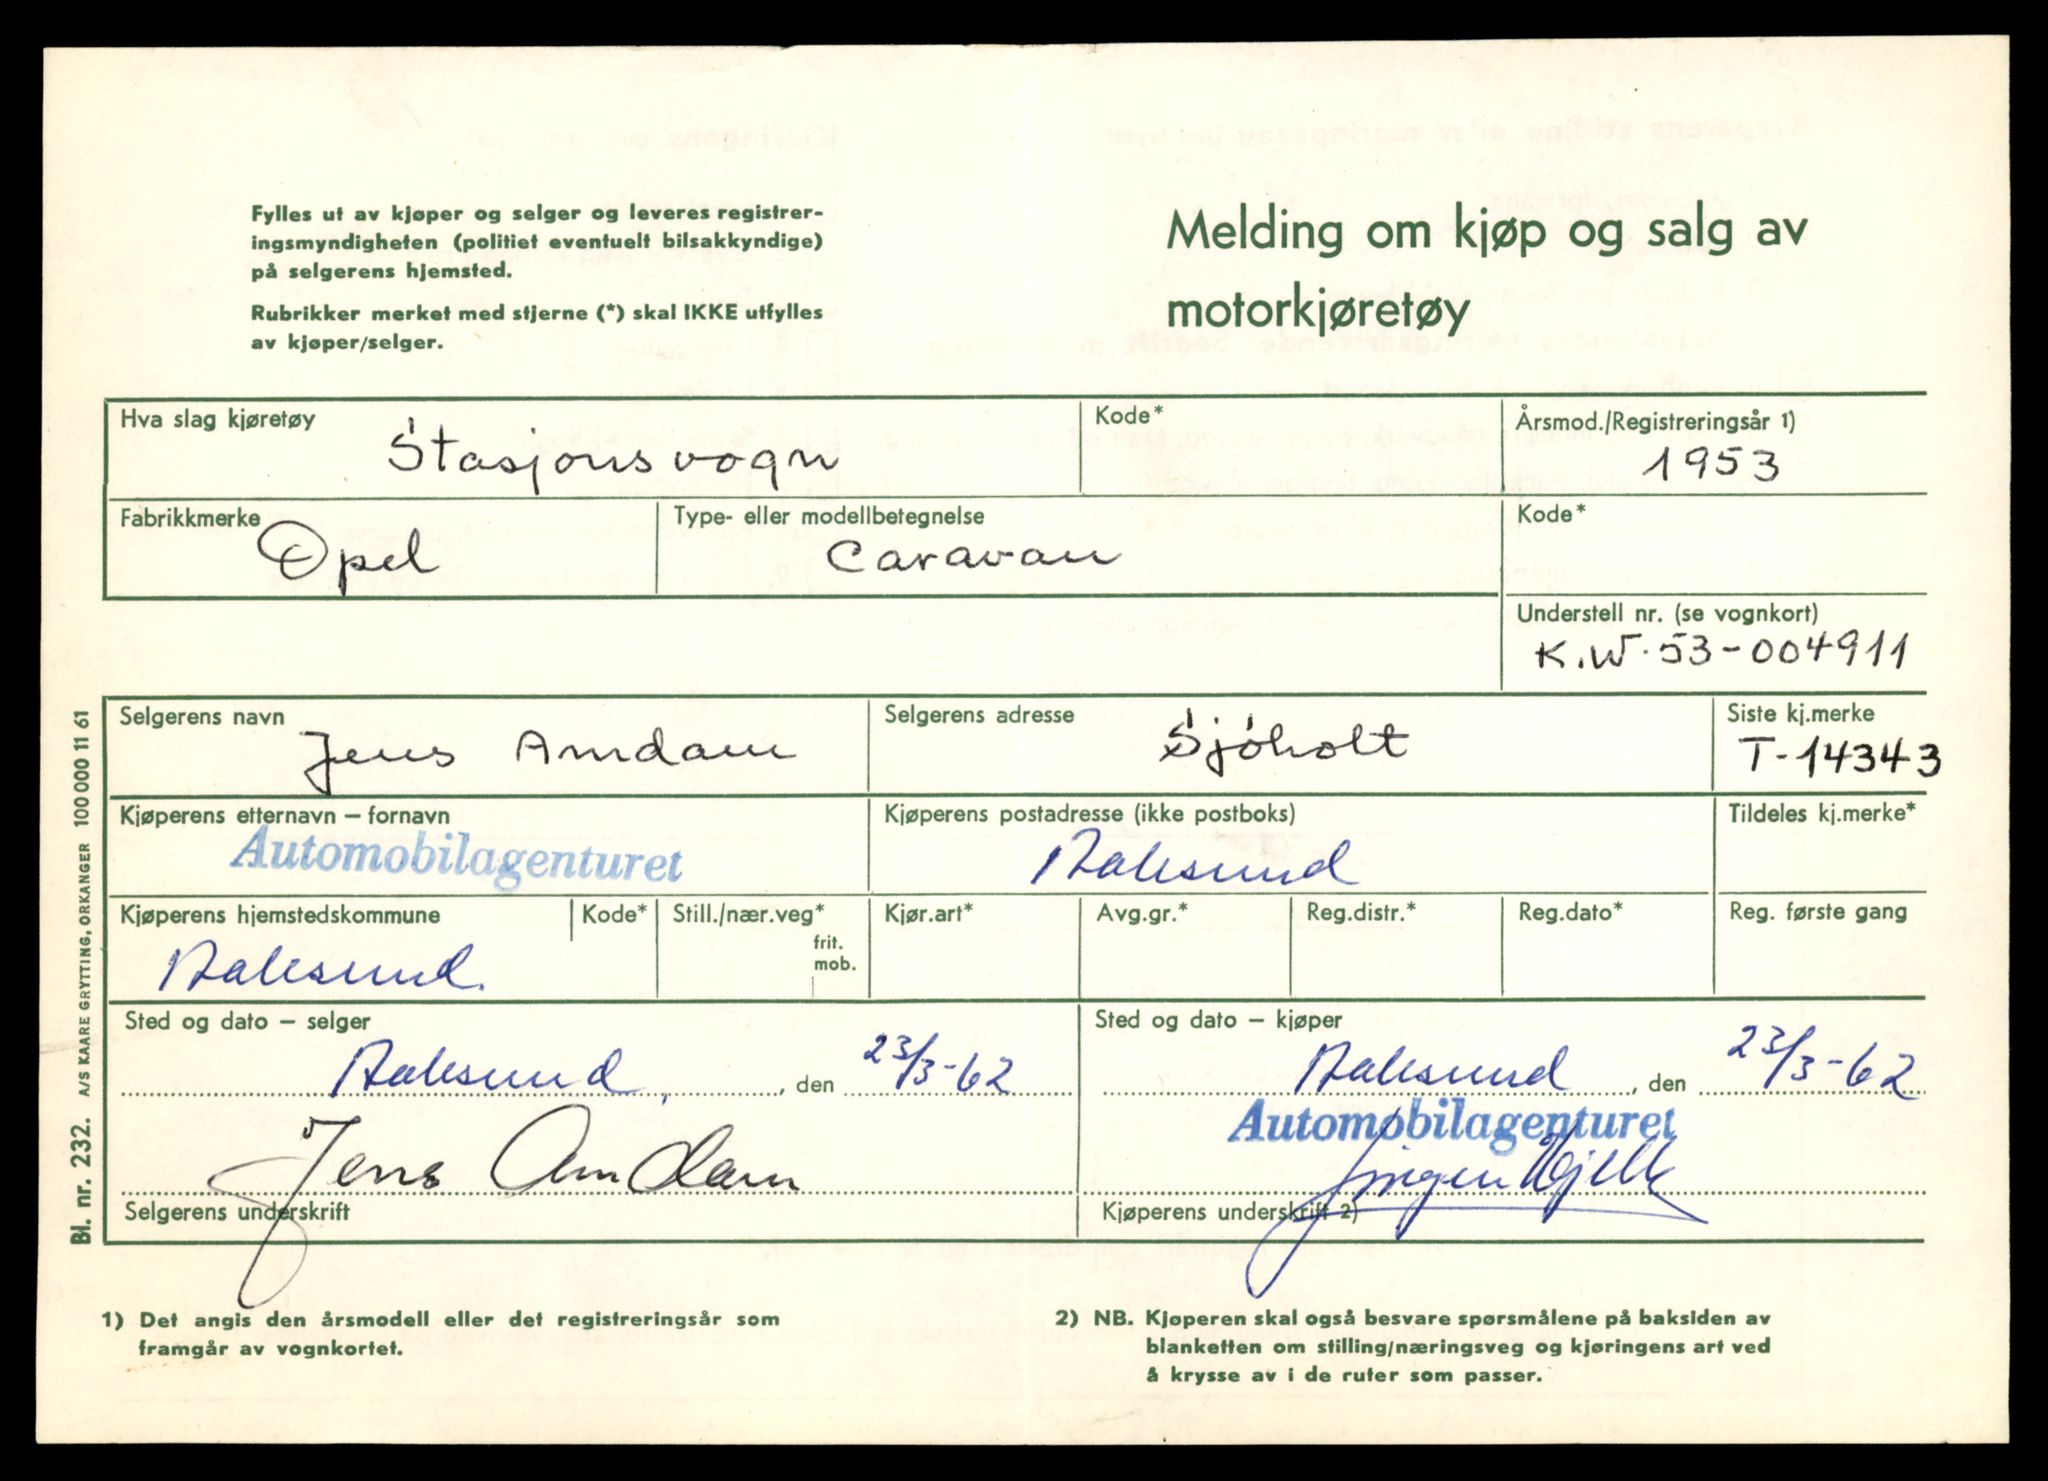 Fylles ut av kjøper og selger og leveres registrer-
ingsmyndigheten (politiet eventuelt bilsakkyndige)
på selgerens hjemsted.
Rubrikker merket med stjerne (*) skal IKKE utfylles
av kjøper/selger.
Melding om kjøp og salg av
motorkjøretøy
Hva slag kjøretøy
Stasjonsvogn
Kode*
Årsmod./Registreringsår 1)
1953
Fabrikkmerke
Opel
Type- eller modellbetegnelse
Caravan
Kode*
Understell nr. (se vognkort)
K.W.53-004911
Selgerens navn
Jens Amdam
Selgerens adresse
Sjöholt
Siste kj.merke
T-14343
Kjøperens etternavn – fornavn
Automobilagenturet
Kjøperens postadresse (ikke postboks)
Aalesund
Tildeles kj.merke*
Kjøperens hjemstedskommune
Aalesund.
Kode*
Still./nær.veg*
frit.
mob.
Kjør.art*
Avg.gr.*
Reg.distr.*
Reg.dato*
Reg. første gang
Sted og dato – selger
Aalesund, den 23/3-62
Jens Amdam
Selgerens underskrift
Sted og dato – kjøper
Aalesund, den 23/3-62
Automobilagenturet
Jørgen Hjelle
Kjøperens underskrift 2)
1) Det angis den årsmodell eller det registreringsår som
framgår av vognkortet.
2) NB. Kjøperen skal også besvare spørsmålene på baksiden av
blanketten om stilling/næringsveg og kjøringens art ved
å krysse av i de ruter som passer.
Bl. nr. 232. A/S KAARE GRYTTING, ORKANGER 100 000 11 61